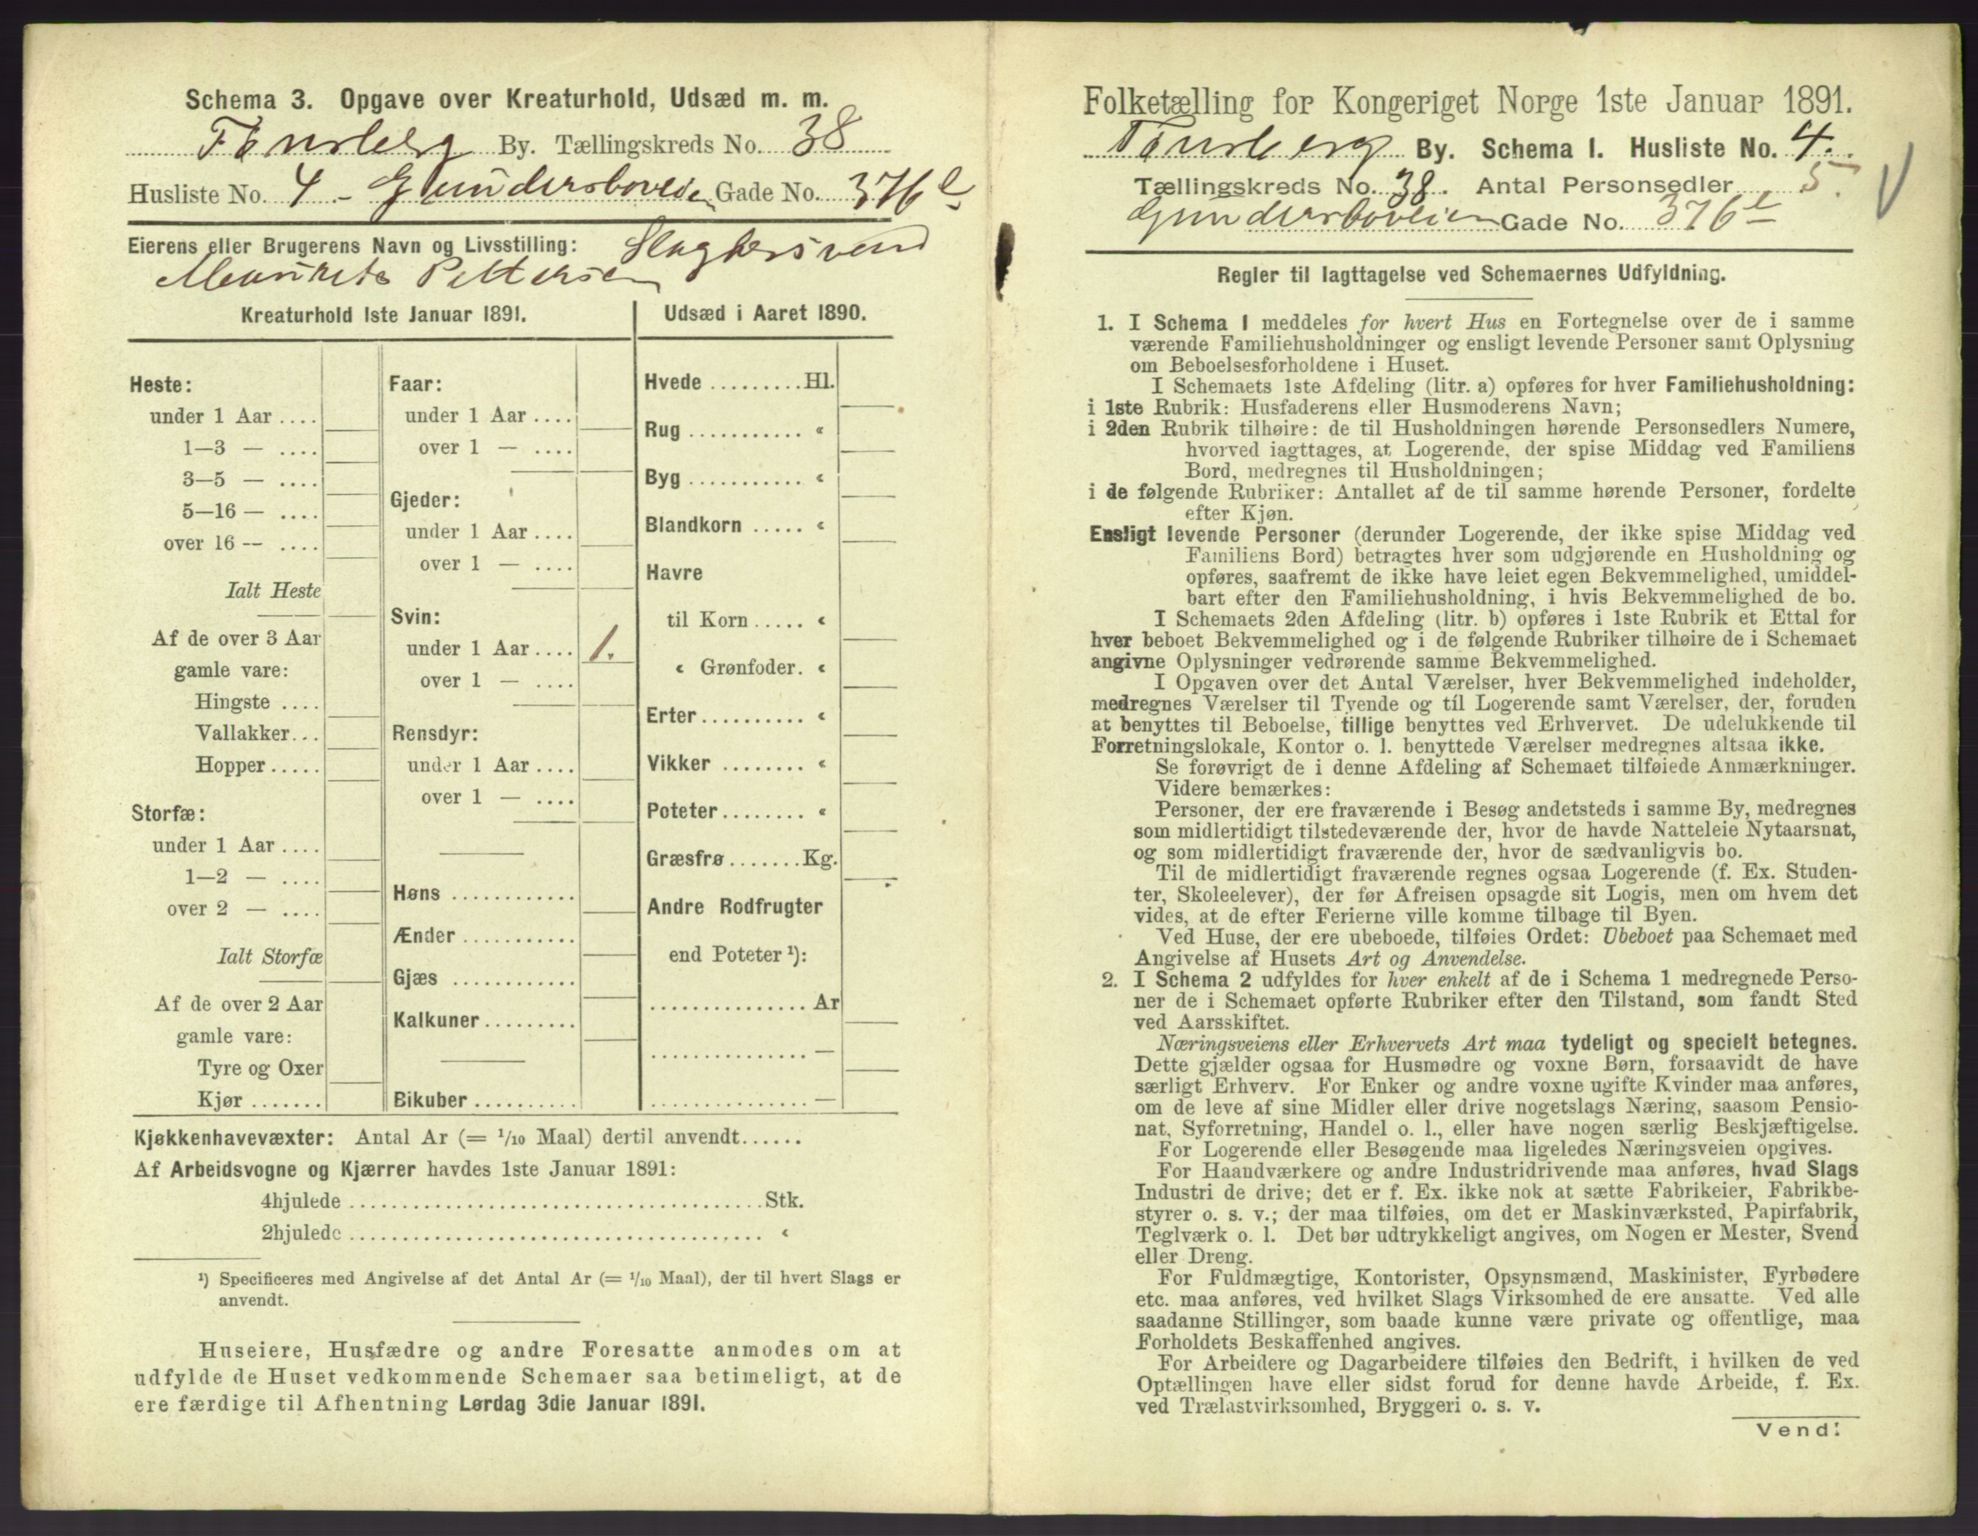 Schema 3. Opgave over Kreaturhold, Udsæd m. m.
Tønsberg By. Tællingskreds No. 38
Husliste No. 4 - Gundersboveien Gade No. 376 e
Eierens eller Brugerens Navn og Livsstilling: Slagtersvend
Mauritz Pettersen
Kreaturhold 1ste Januar 1891.
Heste:
under 1 Aar ....
1—3 — ....
3—5 — ....
5—16 — ....
over 16 — ....
Ialt Heste
Af de over 3 Aar
gamle vare:
Hingste ....
Vallakker...
Hopper.....
Storfæ:
under 1 Aar ....
1—2 — ....
over 2 — ....
Ialt Storfæ
Af de over 2 Aar
gamle vare:
Tyre og Oxer
Kjør .......
Faar:
under 1 Aar ....
over 1 — ....
Gjeder:
under 1 Aar ....
over 1 — ....
Svin:
under 1 Aar .... 1.
over 1 — ....
Rensdyr:
under 1 Aar ....
over 1 — ....
Høns ............
Ænder ...........
Gjæs ............
Kalkuner.........
Bikuber ..........
Udsæd i Aaret 1890.
Hvede .........Hl.
Rug ........... «
Byg ........... «
Blandkorn ..... «
Havre
til Korn ..... «
« Grønfoder. «
Erter.......... «
Vikker ........ «
Poteter........ «
Græsfrø .......Kg.
Andre Rodfrugter
end Poteter ¹):
............... Ar
............... —
............... —
Kjøkkenhavevæxter: Antal Ar (= 1/10 Maal) dertil anvendt......
Af Arbeidsvogne og Kjærrer havdes 1ste Januar 1891:
4hjulede ........................................Stk.
2hjulede ........................................ «
¹) Specificeres med Angivelse af det Antal Ar (= 1/10 Maal), der til hvert Slags er
anvendt.
Huseiere, Husfædre og andre Foresatte anmodes om at
udfylde de Huset vedkommende Schemaer saa betimeligt, at de
ere færdige til Afhentning Lørdag 3die Januar 1891.
Folketælling for Kongeriget Norge 1ste Januar 1891.
Tønsberg By. Schema I. Husliste No. 4.
Tællingskreds No. 38. Antal Personsedler 5.
Gundersboveien Gade No. 376 e
Regler til Iagttagelse ved Schemaernes Udfyldning.
1. I Schema 1 meddeles for hvert Hus en Fortegnelse over de i samme
værende Familiehusholdninger og ensligt levende Personer samt Oplysning
om Beboelsesforholdene i Huset.
I Schemaets 1ste Afdeling (litr. a) opføres for hver Familiehusholdning:
i 1ste Rubrik: Husfaderens eller Husmoderens Navn;
i 2den Rubrik tilhøire: de til Husholdningen hørende Personsedlers Numere,
hvorved iagttages, at Logerende, der spise Middag ved Familiens
Bord, medregnes til Husholdningen;
i de følgende Rubriker: Antallet af de til samme hørende Personer, fordelte
efter Kjøn.
Ensligt levende Personer (derunder Logerende, der ikke spise Middag ved
Familiens Bord) betragtes hver som udgjørende en Husholdning og
opføres, saafremt de ikke have leiet egen Bekvemmelighed, umiddel-
bart efter den Familiehusholdning, i hvis Bekvemmelighed de bo.
I Schemaets 2den Afdeling (litr. b) opføres i 1ste Rubrik et Ettal for
hver beboet Bekvemmelighed og i de følgende Rubriker tilhøire de i Schemaet
angivne Oplysninger vedrørende samme Bekvemmelighed.
I Opgaven over det Antal Værelser, hver Bekvemmelighed indeholder,
medregnes Værelser til Tyende og til Logerende samt Værelser, der, foruden
at benyttes til Beboelse, tillige benyttes ved Erhvervet. De udelukkende til
Forretningslokale, Kontor o. l. benyttede Værelser medregnes altsaa ikke.
Se forøvrigt de i denne Afdeling af Schemaet tilføiede Anmærkninger.
Videre bemærkes:
Personer, der ere fraværende i Besøg andetsteds i samme By, medregnes
som midlertidigt tilstedeværende der, hvor de havde Natteleie Nytaarsnat,
og som midlertidigt fraværende der, hvor de sædvanligvis bo.
Til de midlertidigt fraværende regnes ogsaa Logerende (f. Ex. Studen-
ter, Skoleelever), der før Afreisen opsagde sit Logis, men om hvem det
vides, at de efter Ferierne ville komme tilbage til Byen.
Ved Huse, der ere ubeboede, tilføies Ordet: Ubeboet paa Schemaet med
Angivelse af Husets Art og Anvendelse.
2. I Schema 2 udfyldes for hver enkelt af de i Schema 1 medregnede Perso-
ner de i Schemaet opførte Rubriker efter den Tilstand, som fandt Sted
ved Aarsskiftet.
Næringsveiens eller Erhvervets Art maa tydeligt og specielt betegnes.
Dette gjælder ogsaa for Husmødre og voxne Børn, forsaavidt de have
særligt Erhverv. For Enker og andre voxne ugifte Kvinder maa anføres,
om de leve af sine Midler eller drive nogetslags Næring, saasom Pensio-
nat, Syforretning, Handel o. l., eller have nogen særlig Beskjæftigelse.
For Logerende eller Besøgende maa ligeledes Næringsveien opgives.
For Haandværkere og andre Industridrivende maa anføres, hvad Slags
Industri de drive; det er f. Ex. ikke nok at sætte Fabrikeier, Fabrikbe-
styrer o. s. v.; der maa tilføies, om det er Maskinværksted, Papirfabrik,
Teglværk o. l. Det bør udtrykkeligt angives, om Nogen er Mester, Svend
eller Dreng.
For Fuldmægtige, Kontorister, Opsynsmænd, Maskinister, Fyrbødere
etc. maa anføres, ved hvilket Slags Virksomhed de ere ansatte. Ved alle
saadanne Stillinger, som baade kunne være private og offentlige, maa
Forholdets Beskaffenhed angives.
For Arbeidere og Dagarbeidere tilføies den Bedrift, i hvilken de ved
Optællingen have eller sidst forud for denne havde Arbeide, f. Ex.
ved Trælastvirksomhed, Bryggeri o. s. v.
Vend!